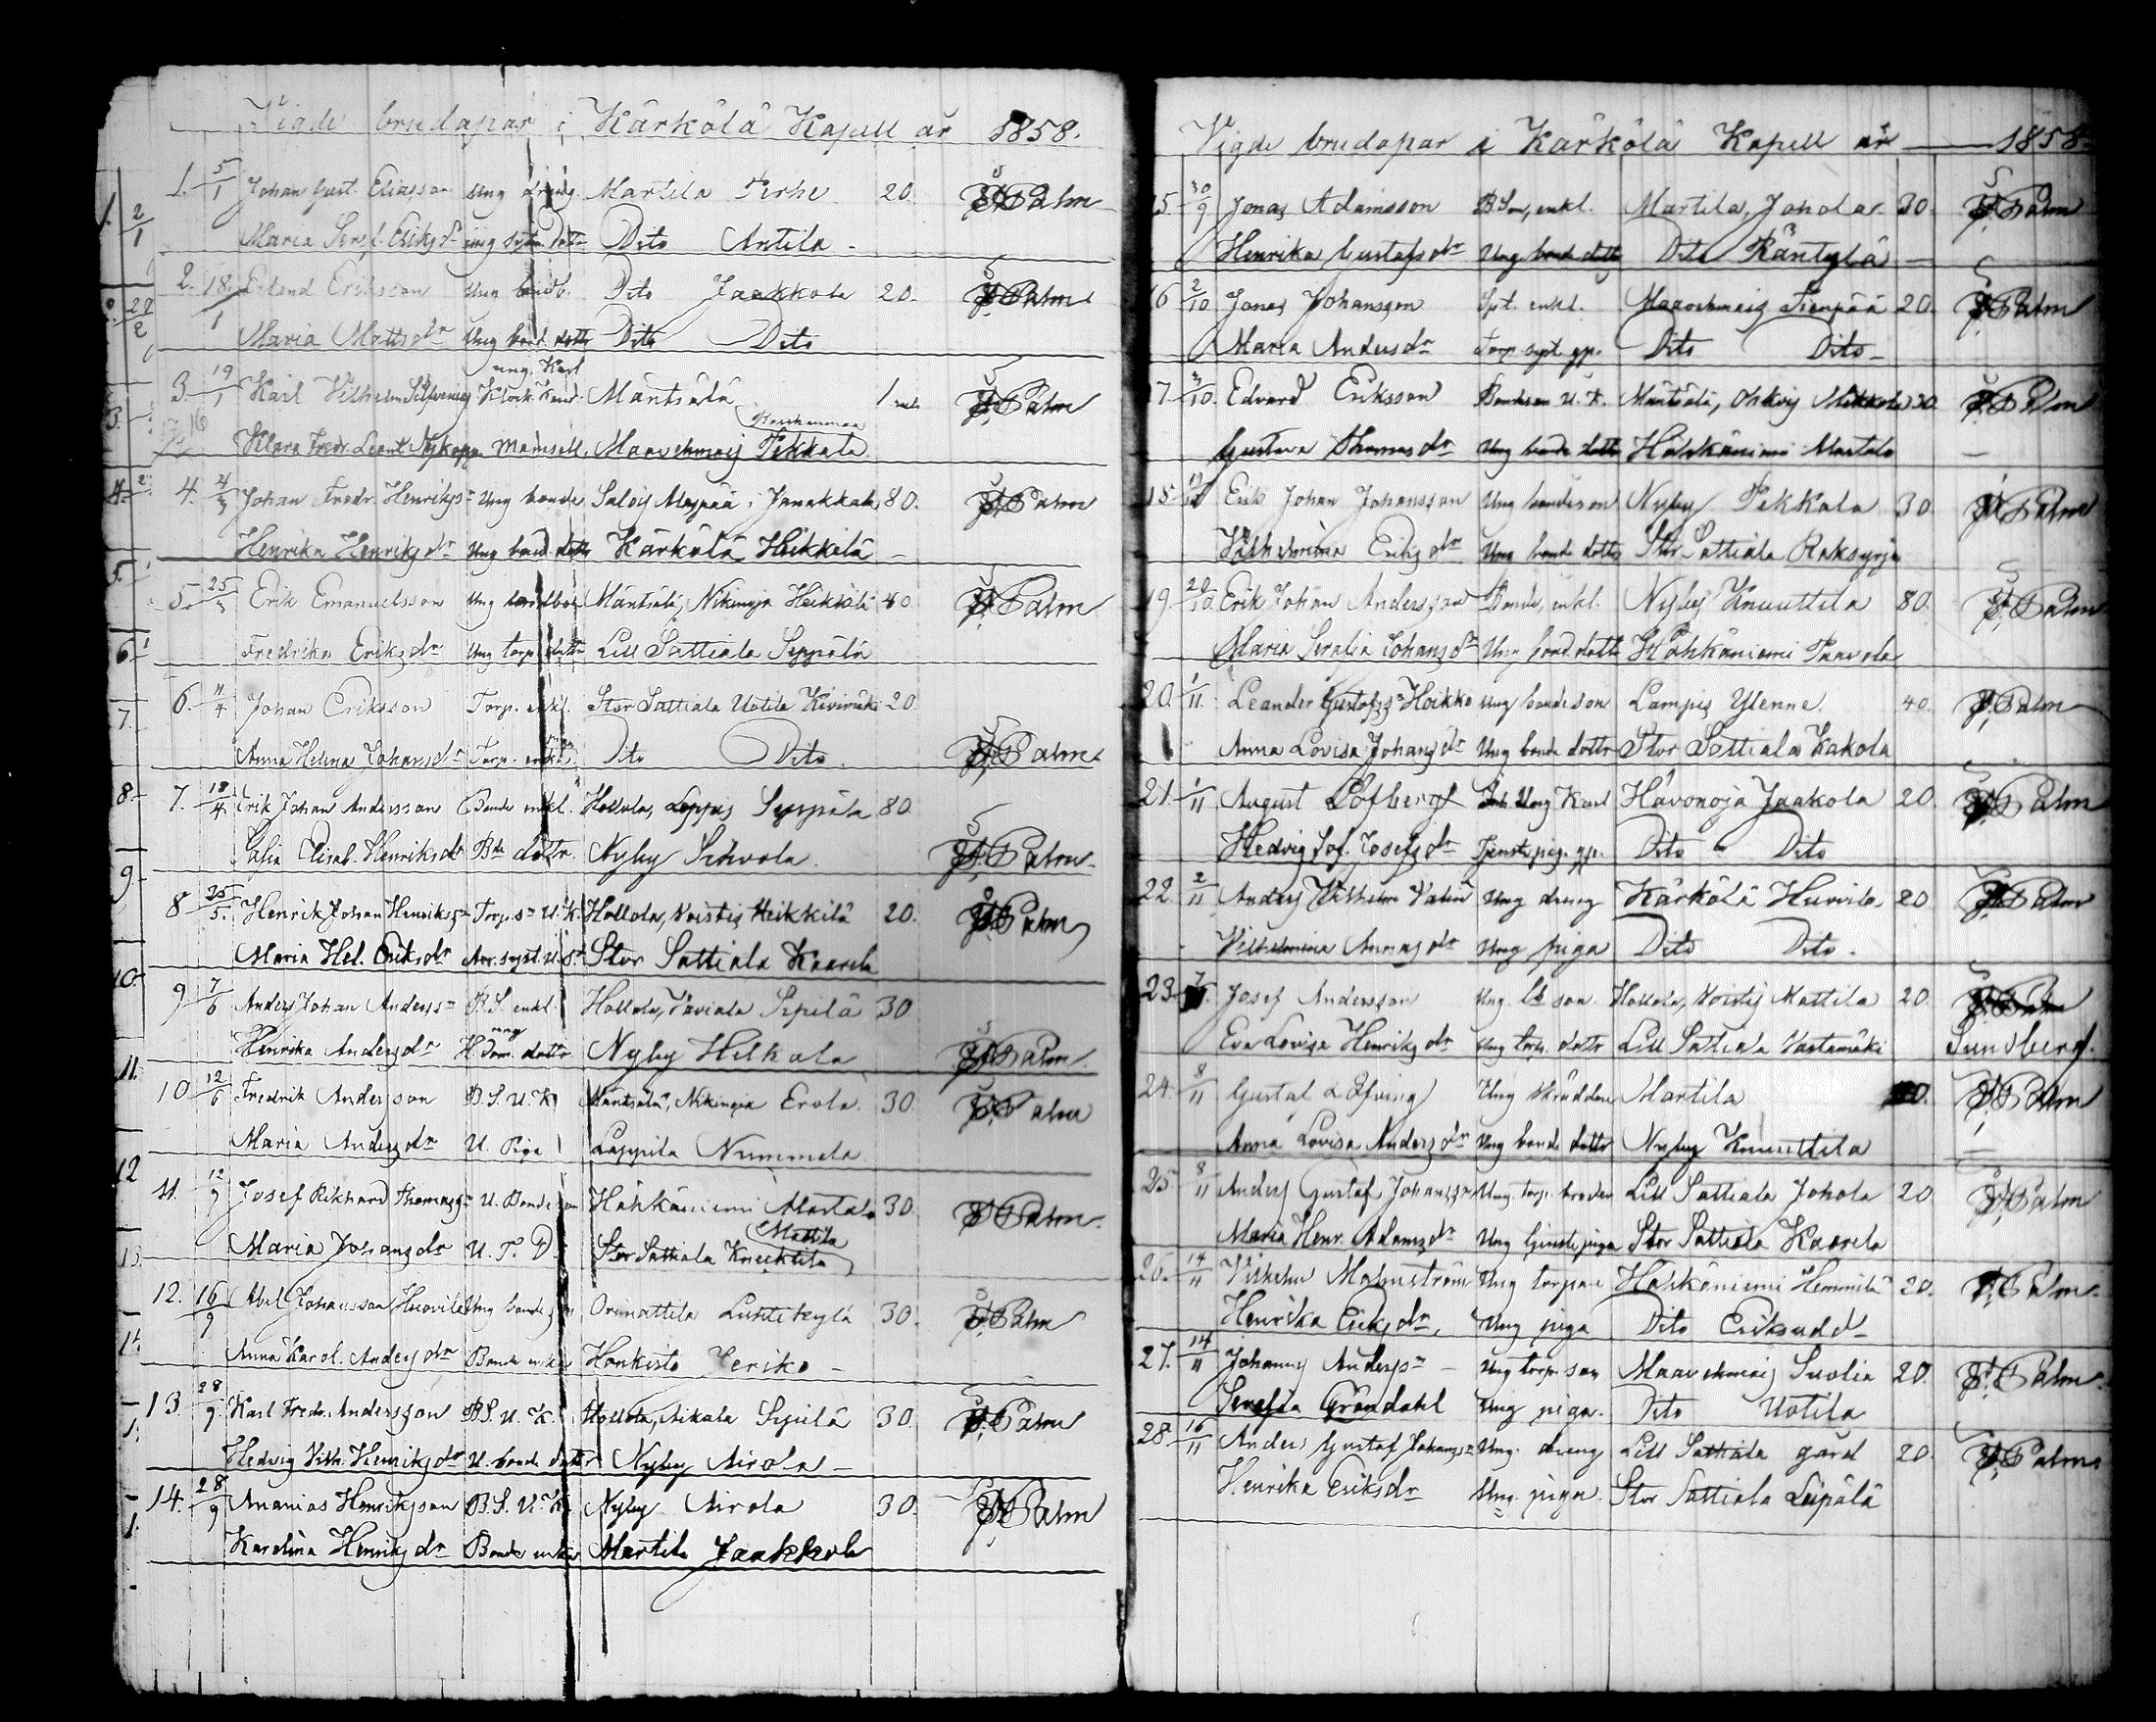 Vigde brudapar i Kärkölä Kapell år 1858.
1. 5/1 Johan Gust. Eliasson Ung dreng Martila Perhe 20. Palm
Maria Seref. Eriksdr Ung dottr Dito Antila
2. 18/1 Erland Eriksson Ung Dito Jaakkola 20. Palm
Maria Mattsdr Ung bond. dottr Dito Dito
ung. Karl
3. 19/1 Karl Vilhelm Klock. Mäntsälä 1 Palm
Klara Fredr. Leont. Nykopp Mamsell. Maavehmais Pekkala
4. 4/3 Johan Fredr. Henrikss Ung bonde Salois i Janakkala 80. Palm
Henrika Henriksdr Ung bond. dottr Kärkölä Heikkilä
5. 25/3 Erik Emanuelsson Ung Mäntsälä, Nikinoja Heikkilä 40 Palm
Fredrika Eriksdr Ung torp. dottr Lill Sattiala Seppälä
6. 11/4 Johan Eriksson Torp. enkl. Stor Sattiala Uotila Kivimäki 20
Anna Helena Johansdr Torp. Dito Dito Palm
7. 18/4 Erik Johan Andersson Bonde enkl. Hollola, Seppälä 80.
Sofia Elisab. Henriksdr dottr. Nyby Palm
8 25/5 Henrik Johan Henrikss Torp. U.K. Hollola, Noistis Heikkilä 20. Palm
Maria Hel. Eriksdr Stor Sattiala Kaarela
9 7/6 Anders Johan Anderss B.S. enkl. Hollola, Sipilä 30
Henrika Andersdr ung dottr Nyby Hilkala Palm
10 12/6 Fredrik Andersson B.S.U.K Mäntsälä, Nikinoja Erola 30. Palm
Maria Andersdr U. Piga Lappila Nummela
11. 12/9 Josef Rikhard Thomass U. Bondeson Hähkäniemi Martala 30. Palm
Maria Johansdr U. T. D. Stor Sattiala Knecktila Mattila
12. 16/9 Abel Johansson Huovila Ung bondeson Orimattila Luhtikylä 30. Palm
Anna Karol. Andersdr Bonde enka Honkisto Jeriko
13. 28/9 Karl Fredr. Andersson B.S.U.K. Hollola, Nikala Sipilä 30. Palm
Hedvig Vilh. Henriksdr U. bonde dottr Nyby Airola
14. 28/9 Ananias Henriksson B.S.U.K. Nyby Airola 30. Palm
Karolina Henriksdr Bonde enka Martila Jaakkola
Vigde brudapar i Kärkölä Kapell år 1858
15. 30/9 Jonas Adamsson B.Son, enkl. Martila, Johola 30. Palm
Henrika Gustafsdr Ung bonde dottr Dito Räntylä
16 2/10 Jonas Johansson Spt. enkl. Maavehmais 20. Palm
Maria Andersdr Torp. Dito Dito
17 3/10. Edvard Eriksson Bondson U.K. Mäntsälä, Mikkola 30 Palm
Gustava Thomasdr Ung bonde dottr Hähkäniemi Martala
18 Erik Johan Johansson Ung bondeson Nyby Pekkala 30. Palm
Vilhelmina Eriksdr Ung bonde dottr Stor Sattiala
19. 20/10. Erik Johan Andersson Bonde, enkl. Nyby Knuuttila 80. Palm
Maria Serafia Johansdr Ung bond. dottr Hähkäniemi Paavola
20. 1/11. Leander Gustafss Hoikko Ung bondeson Lampis Ylenne. 40. Palm
Anna Lovisa Johansdr Ung bonde dottr Stor Sattiala Kakola
21. 1/11 August Löfbergt Ung Karl Hävonoja Jaakola 20. Palm
Hedvig Sof. Josefsdr Tjenste pig. Dito Dito
22. 2/11 Anders Vilhelm Ung dreng Kärkölä Huovila 20 Palm
Vilhelmina Ung piga Dito Dito.
23. Josef Andersson Ung son Hollola, Noistis Mattila 20. Palm
Eva Lovisa Henriksdr Ung torp. dottr Lill Sattiala Vastamäki Sundberg.
24. 8/11 Gustaf Löfving Ung skräddare Martila Palm
Anna Lovisa Andersdr Ung bonde dottr Nyby Knuuttila
25 8/11 Anders Gustaf Johansson Ung torp. broder Lill Sattiala Johola 20. Palm
Maria Henr. Adamsdr Ung tjenste piga Stor Sattiala Kaarela
26. 14/11 Vilhelm Malmström Ung torpare Hähkäniemi Hemmilä 20. Palm
Henrika Eriksdr, Ung piga Dito Eriksudd
27. 14/11 Johannes Anderss Ung torp. son Maavehmais Suolia 20. Palm
Serafia Gröndahl Ung piga. Dito Uotila
28. 16/11 Anders Gustaf Johanss Ung. dreng Lill Sattiala gård 20. Palm
Henrika Eriksdr Ung. piga. Stor Sattiala Leipälä